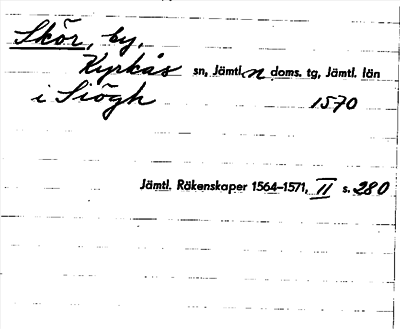 Skör, by,
Kyrkås sn, Jämtl. n doms. tg, Jämtl. län
i Siögh 1570
Jämtl. Räkenskaper 1564–1571, II s. 280